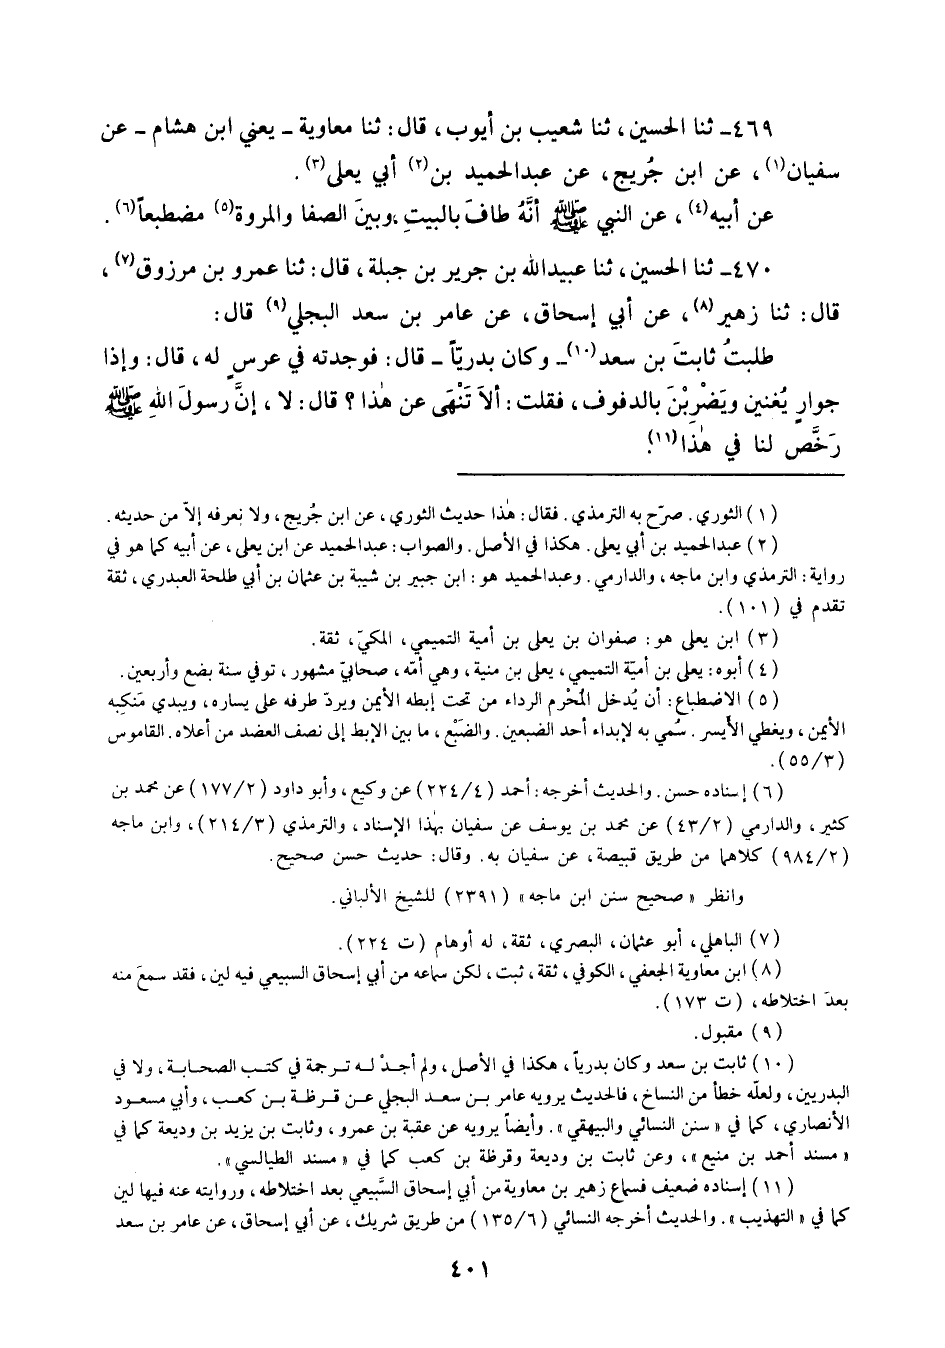 ٤٦٩ـ ثنا الحسين، ثنا شعيب بن أيوب، قال: ثنا معاوية ـ يعني ابن هشام ـ عن
سفيان(١)، عن ابن جُريج، عن عبدالحميد بن(٢) أبي يعلى(٣).
عن أبيه(٤)، عن النبي ﷺ أنَّهُ طافَ بالبيتِ، وبينَ الصفا والمروة(٥) مضطبعاً(٦).
٤٧٠ـ ثنا الحسين، ثنا عبيدالله بن جرير بن جبلة، قال: ثنا عمرو بن مرزوق(٧)،
قال: ثنا زهير(٨)، عن أبي إسحاق، عن عامر بن سعد البجلي(٩) قال:
طلبتُ ثابتَ بن سعد(١٠)ـ وكان بدريّاً ـ قال: فوجدته في عرسٍ له، قال: وإذا
جوارٍ يُغنين ويَضْرِبْنَ بالدفوف، فقلت: ألاَ تَنْهَى عن هٰذا؟ قال: لا، إنَّ رسولَ اللهِ ﷺ
رَخَّص لنا في هٰذا(١١).
(١) الثوري. صرّح به الترمذي. فقال: هٰذا حديث الثوري، عن ابن جُريج، ولا نعرفه إلاّ من حديثه.
(٢) عبدالحميد بن أبي يعلى. هكذا في الأصل. والصواب: عبدالحميد عن ابن يعلى، عن أبيه كما هو في
رواية: الترمذي وابن ماجه، والدارمي. وعبدالحميد هو: ابن جبير بن شيبة بن عثمان بن أبي طلحة العبدري، ثقة
تقدم في (١٠١).
(٣) ابن يعلى هو: صفوان بن يعلى بن أمية التميمي، المكيّ، ثقة.
(٤) أبوه: يعلى بن أميّة التميمي، يعلى بن منية، وهي أمّه، صحابيّ مشهور، توفي سنة بضع وأربعين.
(٥) الاضطباع: أن يُدخل المُحْرم الرداء من تحت إبطه الأيمن ويردّ طرفه على يساره، ويبدي مَنكِبه
الأيمن، ويغطي الأيسر. سُمي به لإبداء أحد الضبعين. والضَبْع، ما بين الإبط إلى نصف العضد من أعلاه. القاموس
(٥٥/٣).
(٦) إسناده حسن. والحديث أخرجه: أحمد (٢٢٤/٤) عن وكيع، وأبو داود (١٧٧/٢) عن محمد بن
كثير، والدارمي (٤٣/٢) عن محمد بن يوسف عن سفيان بهٰذا الإسناد، والترمذي (٢١٤/٣)، وابن ماجه
(٩٨٤/٢) كلاهما من طريق قبيصة، عن سفيان به. وقال: حديث حسن صحيح.
وانظر «صحيح سنن ابن ماجه» (٢٣٩١) للشيخ الألباني.
(٧) الباهلي، أبو عثمان، البصري، ثقة، له أوهام (ت ٢٢٤).
(٨) ابن معاوية الجعفي، الكوفي، ثقة، ثبت، لكن سماعه من أبي إسحاق السبيعي فيه لين، فقد سمعَ منه
بعدَ اختلاطه، (ت ١٧٣).
(٩) مقبول.
(١٠) ثابت بن سعد وكان بدرياً، هكذا في الأصل، ولم أجدْ لـه تـرجمة في كتـب الصحـابـة، ولا في
البدريين، ولعلّه خطأ من النساخ، فالحديث يرويه عامر بـن سعـد البجلي عـن قـرظة بـن كعب، وأبي مسعود
الأنصاري، كما في «سنن النسائي والبيهقي». وأيضاً يرويه عن عقبة بن عمرو، وثابت بن يزيد بن وديعة كما في
«مسند أحمد بن منيع»، وعن ثابت بن وديعة وقرظة بن كعب كما في «مسند الطيالسي».
(١١) إسناده ضعيف فسماع زهير بن معاوية من أبي إسحاق السَّبيعي بعد اختلاطه، وروايته عنه فيها لين
كما في «التهذيب». والحديث أخرجه النسائي (١٣٥/٦) من طريق شريك، عن أبي إسحاق، عن عامر بن سعد
٤٠١